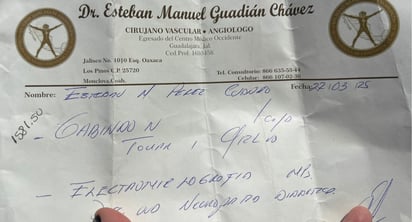 Dr. Esteban Manuel Guadián Chávez
CIRUJANO VASCULAR • ANGIOLOGO
Egresado del Centro Médico Occidente
Guadalajara, Jal.
Ced. Prof.
Jalisco No. 1010 Esq. Oaxaca
Los Pinos C.P. 25720
Monclova, Coah.
Tel. Consultorio: 866 635-58-44
Celular: 866 107-02-36
Nombre: ESTEBAN N PEREZ
Fecha: 22-03
1581.50
- GABINDO N
TOMAR 1
- ELECTROMIOGRAFIA MB
NEUROPATO DIABETICA